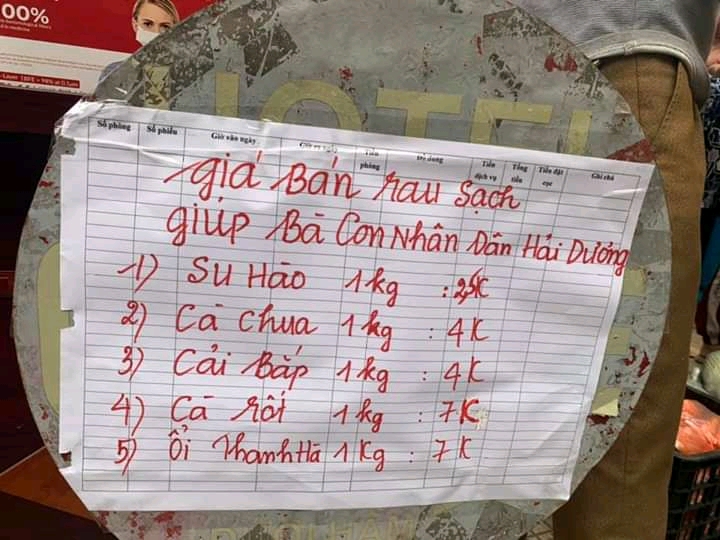 00%
Layer (BFE > 98% at 0.1µm)
HOTEL
Số phòng Số phiếu Giờ vào ngày Giờ ra ngày Tiền phòng Đồ dùng Tiền dịch vụ Tổng tiền Tiền đặt cọc Ghi chú
giá Bán rau sạch
giúp Bà Con Nhân Dân Hải Dương
1) SU Hào 1kg : 2,5K
2) Cà chua 1kg : 4K
3) Cải Bắp 1kg : 4K
4) Cà rốt 1kg : 7K
5) Ổi Thanh Hà 1Kg : 7K